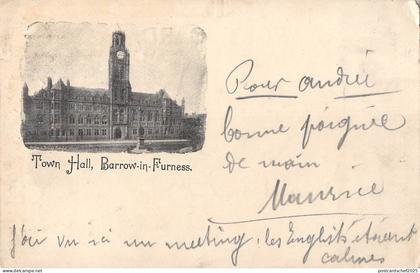 Town Hall, Barrow-in-Furness.
Pour andré
bonne poignée
de main
Maurice
J'ai vu ici un meeting; les English étaient
calmes
postcardschef2005